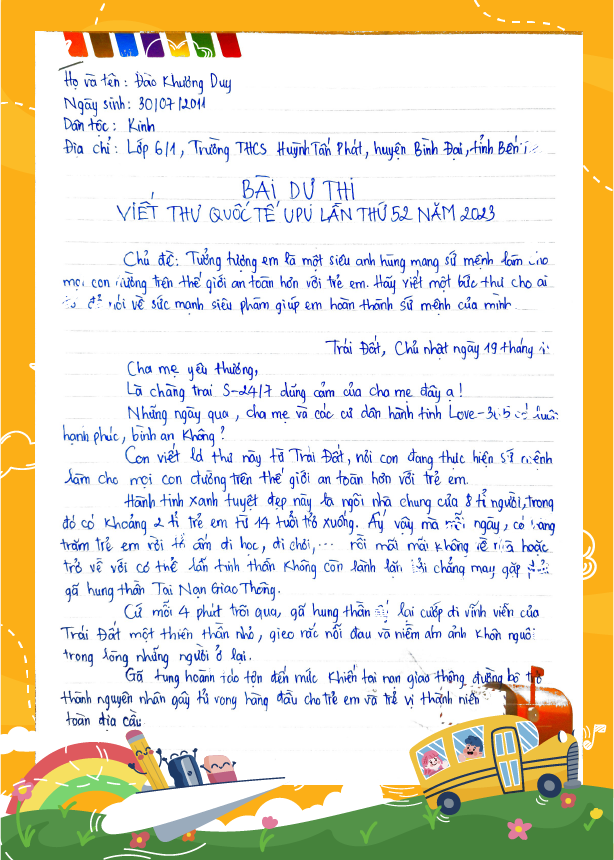 Họ và tên : Đào Khương Duy
Ngày sinh : 30/07/2011
Dân tộc : Kinh
Địa chỉ : Lớp 6/1, Trường THCS Huỳnh Tấn Phát, huyện Bình Đại, tỉnh Bến
BÀI DỰ THI
VIẾT THƯ QUỐC TẾ UPU LẦN THỨ 52 NĂM 2023
Chủ đề: Tưởng tượng em là một siêu anh hùng mang sứ mệnh làm cho
mọi con đường trên thế giới an toàn hơn với trẻ em. Hãy viết một bức thư cho ai
để nói về sức mạnh siêu phàm giúp em hoàn thành sứ mệnh của mình
Trái Đất, Chủ nhật ngày 19 tháng
Cha mẹ yêu thương,
Là chàng trai S-24/7 dũng cảm của cha mẹ đây ạ!
Những ngày qua, cha mẹ và các cư dân hành tinh Love-365 có luôn
hạnh phúc, bình an không?
Con viết lá thư này từ Trái Đất, nơi con đang thực hiện sứ mệnh
làm cho mọi con đường trên thế giới an toàn hơn với trẻ em.
Hành tinh xanh tuyệt đẹp này là ngôi nhà chung của 8 tỉ người, trong
đó có khoảng 2 tỉ trẻ em từ 14 tuổi trở xuống. Ấy vậy mà mỗi ngày, có hàng
trăm trẻ em rời tổ ấm đi học, đi chơi,... rồi mãi mãi không về nữa hoặc
trở về với cơ thể lẫn tinh thần không còn lành lặn bởi chẳng may gặp phải
gã hung thần Tai Nạn Giao Thông.
Cứ mỗi 4 phút trôi qua, gã hung thần ấy lại cướp đi vĩnh viễn của
Trái Đất một thiên thần nhỏ, gieo rắc nỗi đau và niềm ám ảnh khôn nguôi
trong lòng những người ở lại.
Gã tung hoành táo tợn đến mức khiến tai nạn giao thông đường bộ trở
thành nguyên nhân gây tử vong hàng đầu cho trẻ em và trẻ vị thành niên
toàn địa cầu